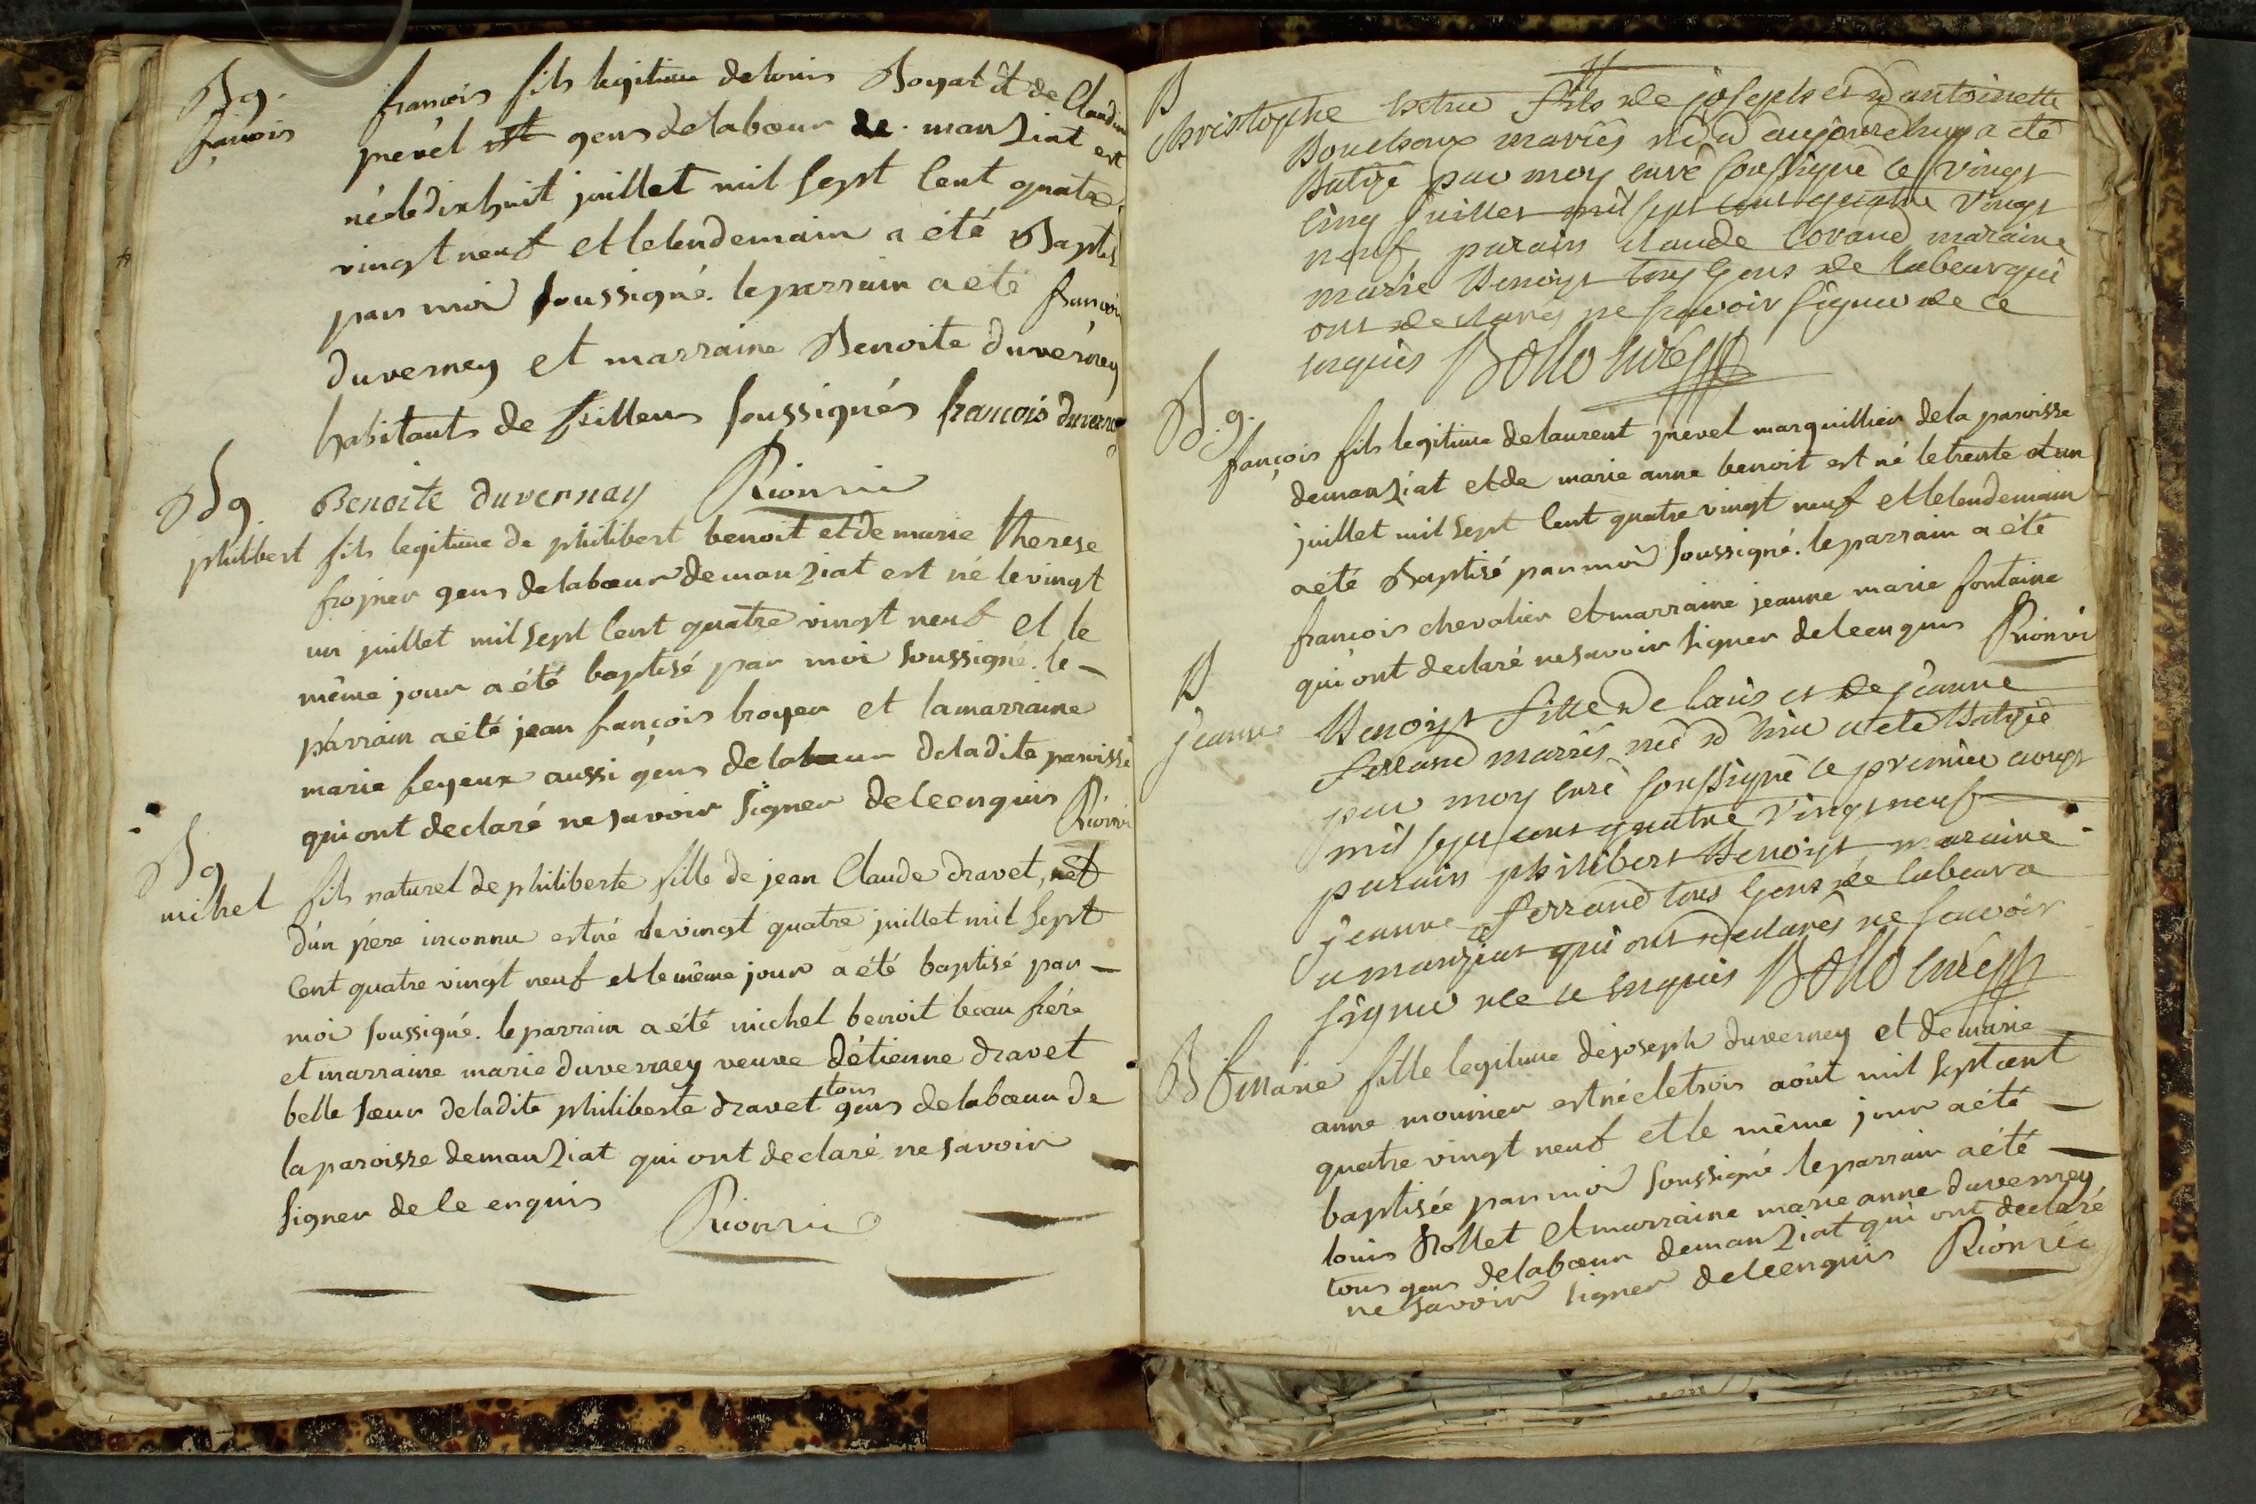 B g.
françois
françois fils legitime de louis Boyat et de Claudine
prevel gens de labœur de manziat est
né le dix huit juillet mil sept cent quatre
vingt neuf et le lendemain a été Baptisé
par moi soussigné. le parrain a été françois
duverney et marraine Benoite duverney
habitants de feillens soussignés francois duverney
Benoite duvernay Rionnie
B g
philibert fils legitime de philibert benoit et de marie therese
gens de labœur de manziat est né le vingt
un juillet mil sept cent quatre vingt neuf et le
même jour a été baptisé par moi soussigné. le
parrain a été jean françois broyer et la marraine
marie feyeux aussi gens de labœur de la dite paroisse
qui ont declaré ne savoir signer de ce enquis Rionnie
B g
michel
fils naturel de philiberte fille de jean Claude dravet, et
d'un pére inconnu est né le vingt quatre juillet mil sept
cent quatre vingt neuf et le même jour a été baptisé par
moi soussigné. le parrain a été michel benoit beau frére
et marraine marie duverney veuve d'étienne dravet
belle sœur de la dite philiberte dravet tous gens de labœur de
la paroisse de manziat qui ont declaré ne savoir
signer de ce enquis Rionnie
B
christophe fils de joseph et d antoinette
Bouchoux mariés né d aujourdhuy a eté
Batizé par moy curé soussigné le vingt
cinq juillet mil sept cent quatre vingt
neuf parain claude maraine
marie Benoist tous gens de labeur qui
ont declarés ne scavoir signer de ce
enquis Bollo curé
B. g.
françois fils legitime de laurent prevel marguillier de la paroisse
de manziat et de marie anne benoit est né le trente et un
juillet mil sept cent quatre vingt neuf et le lendemain
a été Baptisé par moi soussigné. le parrain a été
françois chevalier et marraine jeanne marie fontaine
qui ont declaré ne savoir signer de ce enquis Rionnie
B
jeanne Benoist fille de louis et de jeanne
ferrand mariés née d hier a eté Batizée
par moy curé soussigné le premier aoust
mil sept cent quatre vingt neuf
parain philibert Benoist maraine
jeanne ferrand tous gens de labeur a
manziat qui ont declarés ne scavoir
signer de ce enquis Bollo curé
B
Marie fille legitime de joseph duverney et de marie
anne mounier est née le trois août mil sept cent
quatre vingt neuf et le même jour a été
baptisée par moi soussigné le parrain a été
louis Rollet et marraine marie anne duverney
tous gens de labœur de manziat qui ont declaré
ne savoir signer de ce enquis Rionnie